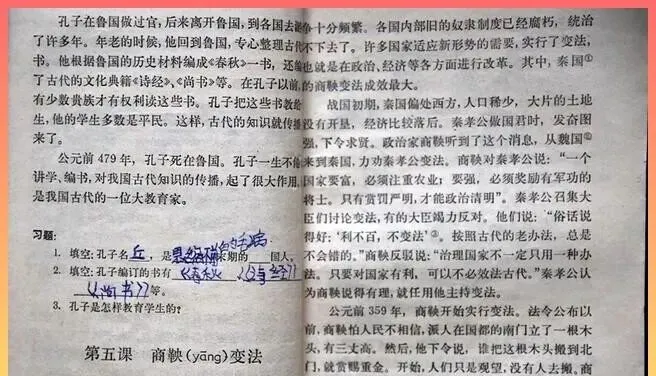 孔子在鲁国做过官，后来离开鲁国，到各国去游
了许多年。年老的时候，他回到鲁国，专心整理古代
书。他根据鲁国的历史材料编成《春秋》一书，还编
了古代的文化典籍《诗经》、《尚书》等。在孔子以前，
有少数贵族才有权利读这些书。孔子把这些书教给
生，他的学生多数是平民。这样，古代的知识就传播
来了。
公元前 479 年，孔子死在鲁国。孔子一生不倦
讲学、编书，对我国古代知识的传播，起了很大作用，
是我国古代的一位大教育家。
习题：
1. 填空：孔子名丘，是末期的 国人，
2. 填空：孔子编订的书有《春秋》、
《尚书》等。
3. 孔子是怎样教育学生的？
第五课 商鞅(yāng)变法
争十分频繁。各国内部旧的奴隶制度已经腐朽，统治
不下去了。许多国家适应新形势的需要，实行了变法，
也就是在政治、经济等各方面进行改革。其中，秦国①
的商鞅变法成效最大。
战国初期，秦国偏处西方，人口稀少，大片的土地
没有开垦，经济比较落后。秦孝公做国君时，发奋图
强，下令求贤。政治家商鞅听到了这个消息，从魏国②
来到秦国，力劝秦孝公变法。商鞅对秦孝公说：“一个
国家要富，必须注重农业；要强，必须奖励有军功的
将士。只有赏罚严明，才能政治清明”。秦孝公召集大
臣们讨论变法，有的大臣竭力反对。他们说：“俗话说
得好：‘利不百，不变法’③。按照古代的老办法，总是
不会错的。”商鞅反驳说：“治理国家不一定只用一种办
法。只要对国家有利，可以不必效法古代。”秦孝公认
为商鞅说得有理，就任用他主持变法。
公元前 359 年，商鞅开始实行变法。法令公布以
前，商鞅怕人民不相信，派人在国都的南门立了一根木
头，有三丈高。然后，他下令说，谁把这根木头搬到北
门，就赏赐重金。开始，人们只是观望，没有人去搬。商